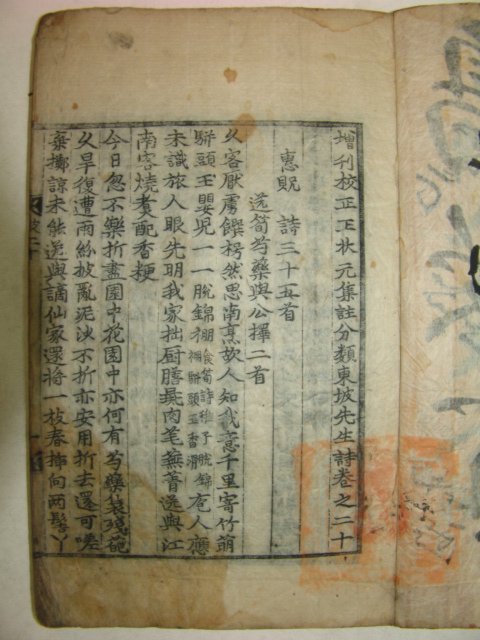 增刊校正王狀元集註分類東坡先生詩卷之二十
惠貺 詩三十五首
送筍芍藥與公擇二首
久客厭虜饌枵然思南烹故人知我意千里寄竹萌
駢頭玉嬰兒一一脫錦綳食筍詩稚子脫錦綳駢頭玉香滑庖人應
未識旅人眼先明我家拙厨膳彘肉芼蕪菁送與江
南客燒煑配香粳
今日忽不樂折盡園中花園中亦何有芍藥裊殘葩
久旱復遭雨紛披亂泥沙不折亦安用折去還可嗟
棄擲諒未能送與謫仙家還將一枝春揷向兩髻丫